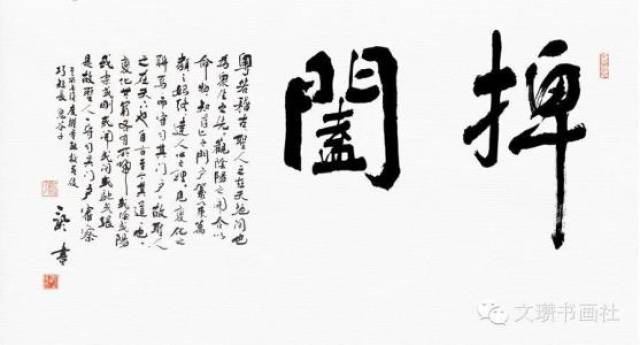 捭闔
粵若稽古聖人之在天地間也
為衆生之先觀陰陽之開合以
命物知存亡之門户籌策萬
類之終始達人心之理見變化之
朕焉而守司其門户故聖人
之在天下也自古至今其道一也
變化無窮各有所歸或陰或陽
或柔或剛或開或閉或弛或張
是故聖人一守司其門户審察
其所先後度權量能校其伎
巧短長 鬼谷子
書
文瓒书画社